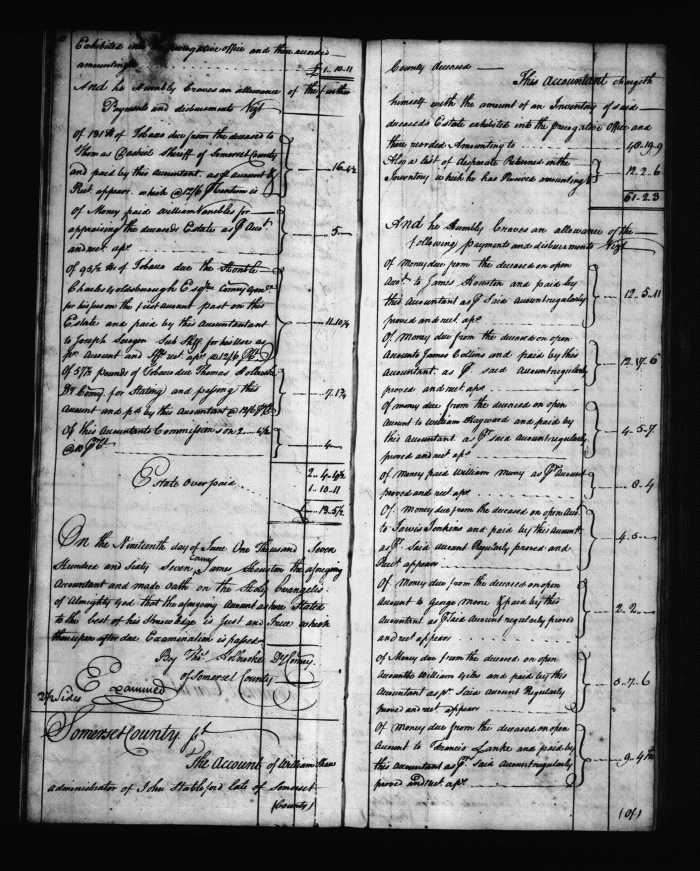 Exhibited into the prerogative office and there recorded
amounting to £1..10..11
And he Humbly Craves an allowance of the further
Payments and disbursments Vizt
of 131 lb of Tobacco due from the deceased to
Thomas Sheriff of Somerset County
and paid by this accountant as pr account &
Rect appears which @ 12/6 pr Centum is 16..4½
of Money paid William Venables for
appraising the deceaseds Estate as pr Acct
and rect apr 5
of 93½ lbs of Tobacco due the Honble
Charles Goldsborough Esqr Comry Genl
for his fees on the first account past on this
Estate and paid by this Accountant
to Joseph Sub Shff for his use as
pr Account and rect apr @ 12/6 pr Ct 11..10¼
Of 57½ pounds of Tobacco due Thomas Holbrooke
Dy Comy for Stating and passing this
Account and pd by this Accountant @ 12/6 pr Ct 7..1¼
Of this Accountants Commissions on
@ 10 pr Ct 4
2..4..4½
Estate over paid 1..10..11
13..5½
On the Nineteenth day of June One Thousand Seven
Hundred and Sixty Seven Came James Houston the aforegoing
Accountant and made Oath on the Holy Evangelis
of Almighty God that the aforegoing Account as here Stated
to the best of his Knowledge is Just and True which
thereupon after due Examination is passed
By Thos Holbrooke Dy Comry
of Somerset County
Examined
2½ Sides
Somerset County Sct
The Account of William Shaw
administrator of John Statleford late of Somerset
(County)
County deceased
This Accountant chargeth
himself with the amount of an Inventory of said
deceaseds Estate exhibited into the prerogative Office and
there recorded Amounting to 48..19..9
Also a List of desperate Returned in the
Inventory which he has Received amounting to 12..2..6
61..2..3
And he Humbly Craves an allowance of the
following payments and disbursments Vizt
Of money due from the deceased on open
Acct to James Houston and paid by
this Accountant as pr Said account regularly
proved and rect apr 12..5..11
Of money due from the deceased on open
Account to James Collins and paid by this
Accountant as pr said Account regularly
proved and rect apr 12..17..6
Of money due from the deceased on open
Account to William Hayward and paid by
this Accountant as pr said account regularly
proved and rect apr 4..5..7
of money paid William as pr Account
proved and rect apr 8..4
Of Money due from the deceased on open Acct
to Jarvis Jenkens and paid by this Account
as pr Said account Regularly proved and
Rect appears 4..5
Of Money due from the deceased on open
Account to George More & paid by this
Accountant as pr said Account regularly proved
and rect appears 2..2
of Money due from the deceased on open
Account to William Giles and paid by this
Accountant as pr Said account Regularly
proved and rect appears 5..7..6
Of Money due from the deceased on open
Account to Francis Lanke and paid by
this Accountant as pr Said Account regularly
proved and rect apr 9..4
(Of)